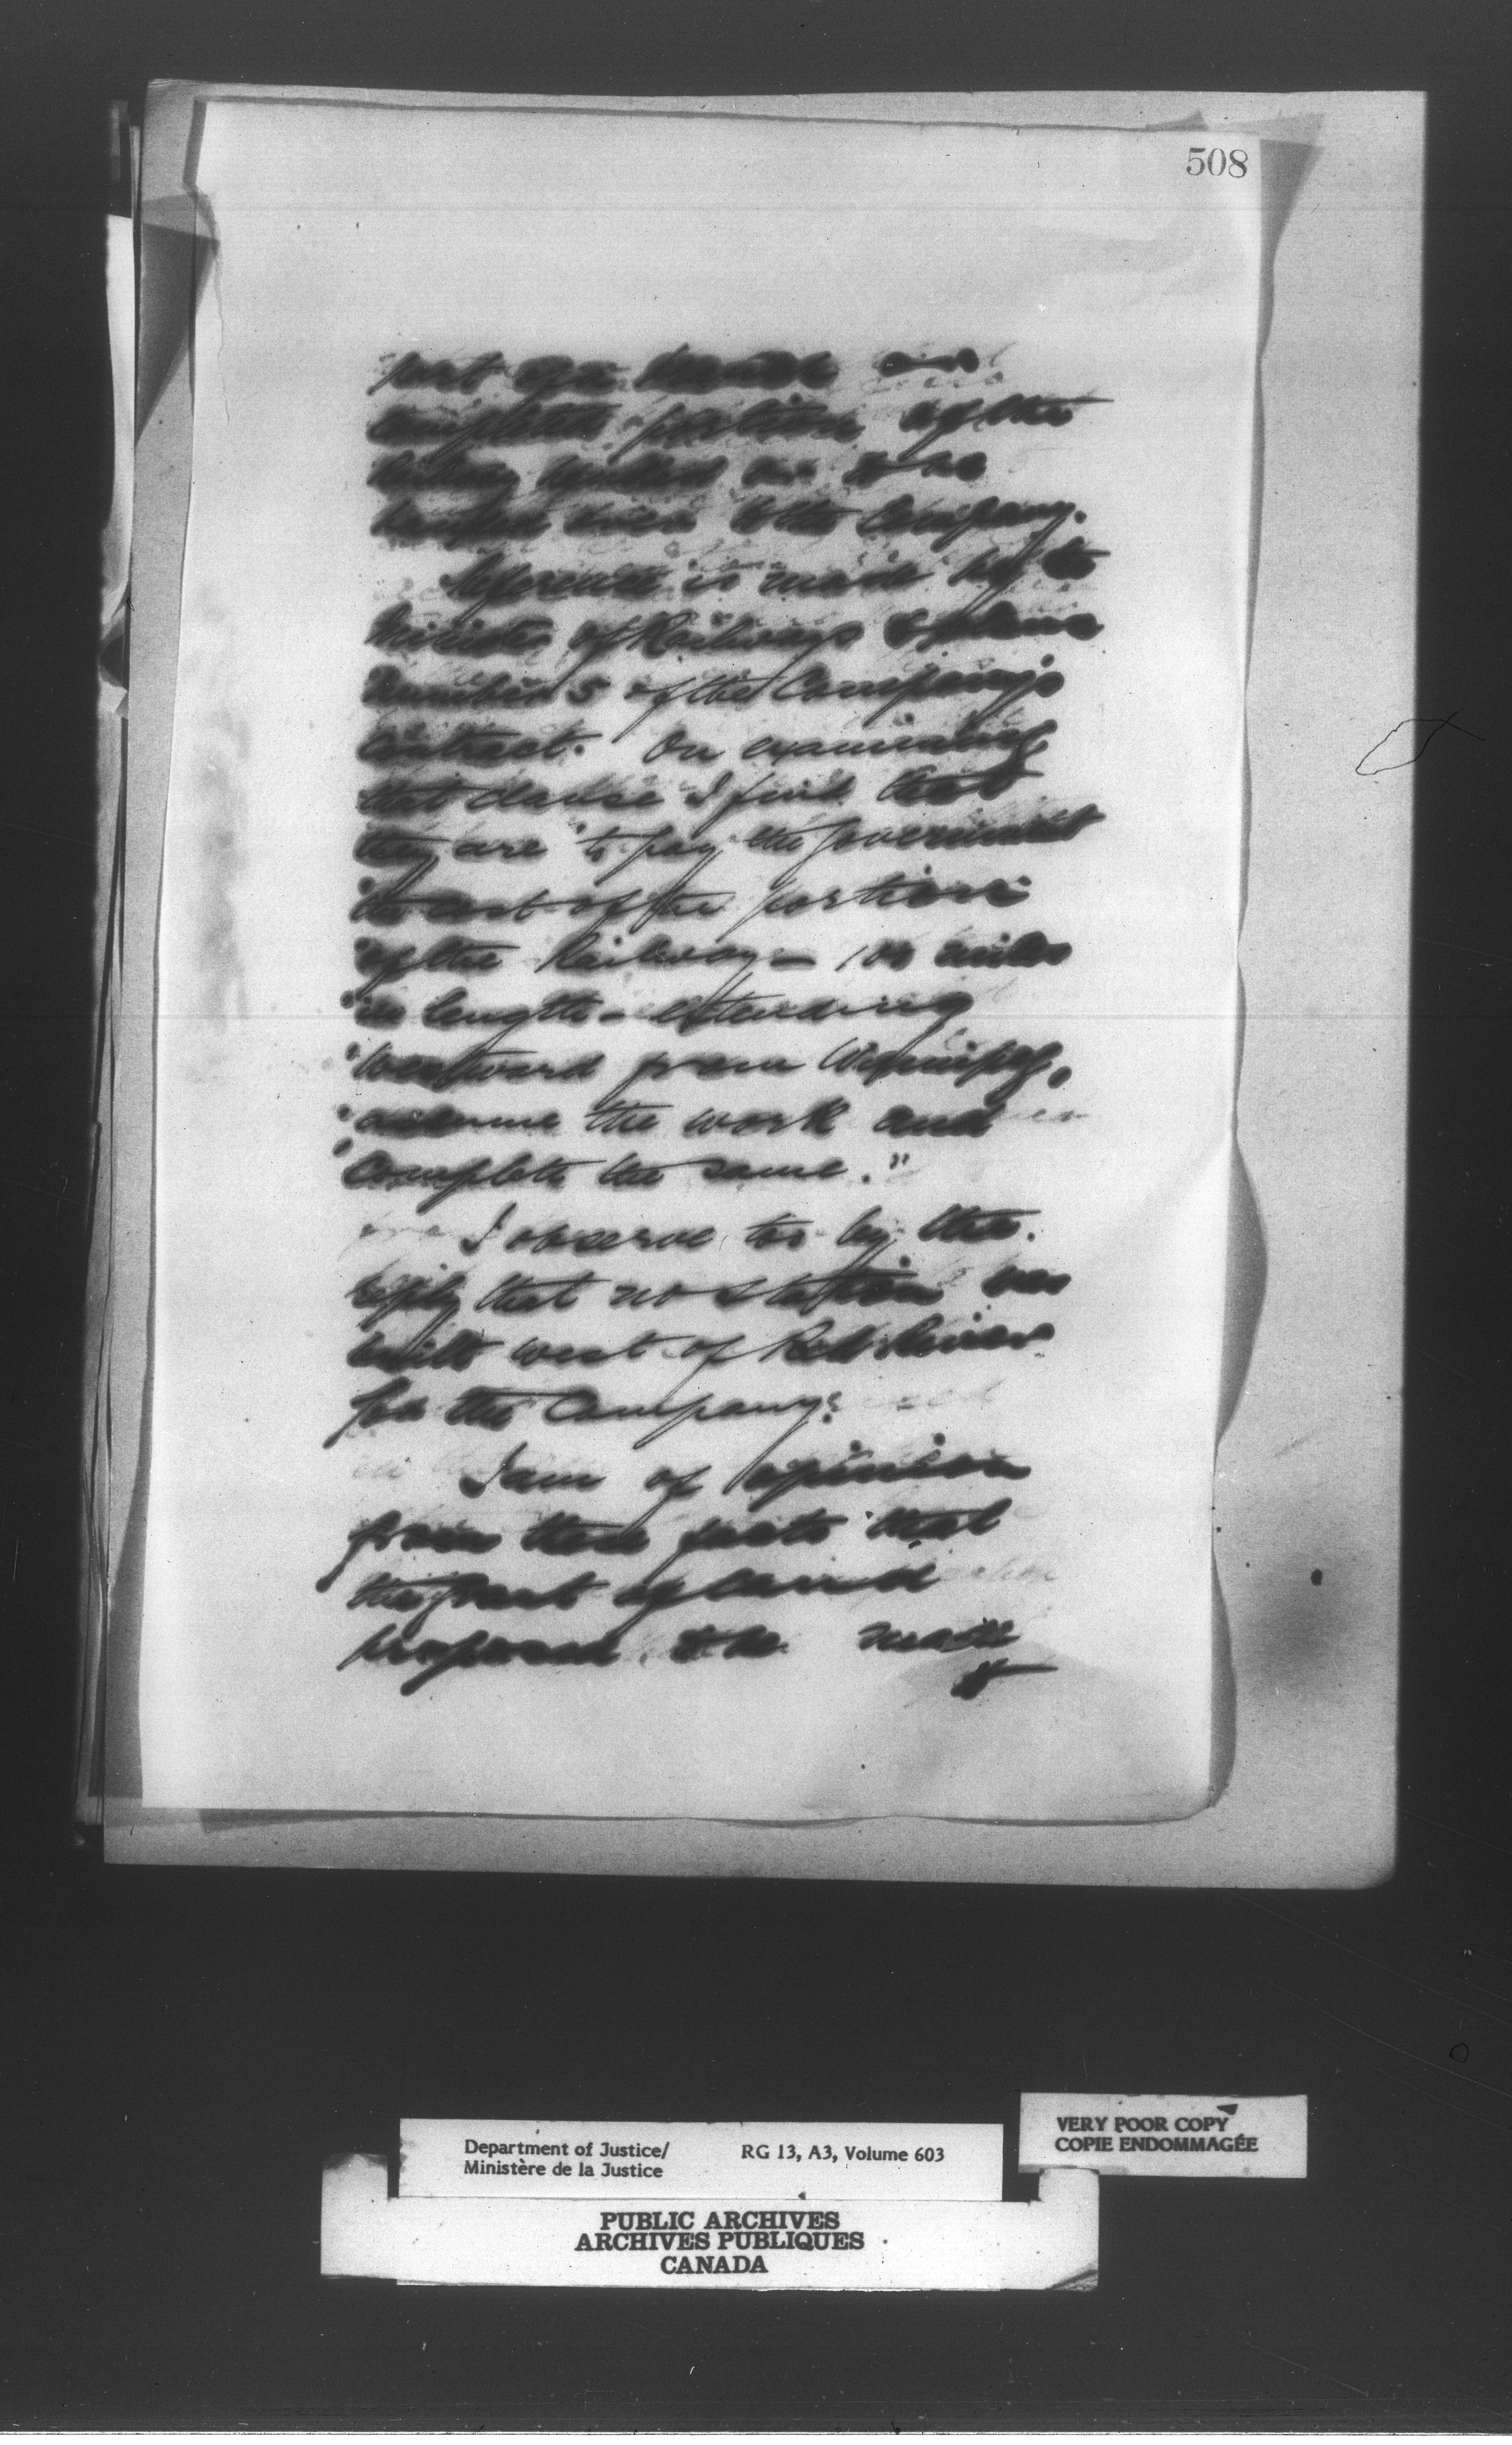 508
part of a
completed portion of the
to be
handed over to the Company.
Reference is made by the
Minister of Railways to clause
Number 5 of the Company's
Contract. On examining
that clause I find that
they are "to pay the Government
"the cost of the portion
"of the Railway – 100 miles
"in length – extending
"Westward from Winnipeg,
"assume the work and
"complete the same."
I observe too by the
reply that no station was
built west of Red River
for the Company.
I am of opinion
from these facts that
the grant of land
proposed to be made
Department of Justice/
Ministère de la Justice
RG 13, A3, Volume 603
VERY POOR COPY
COPIE ENDOMMAGÉE
PUBLIC ARCHIVES
ARCHIVES PUBLIQUES
CANADA